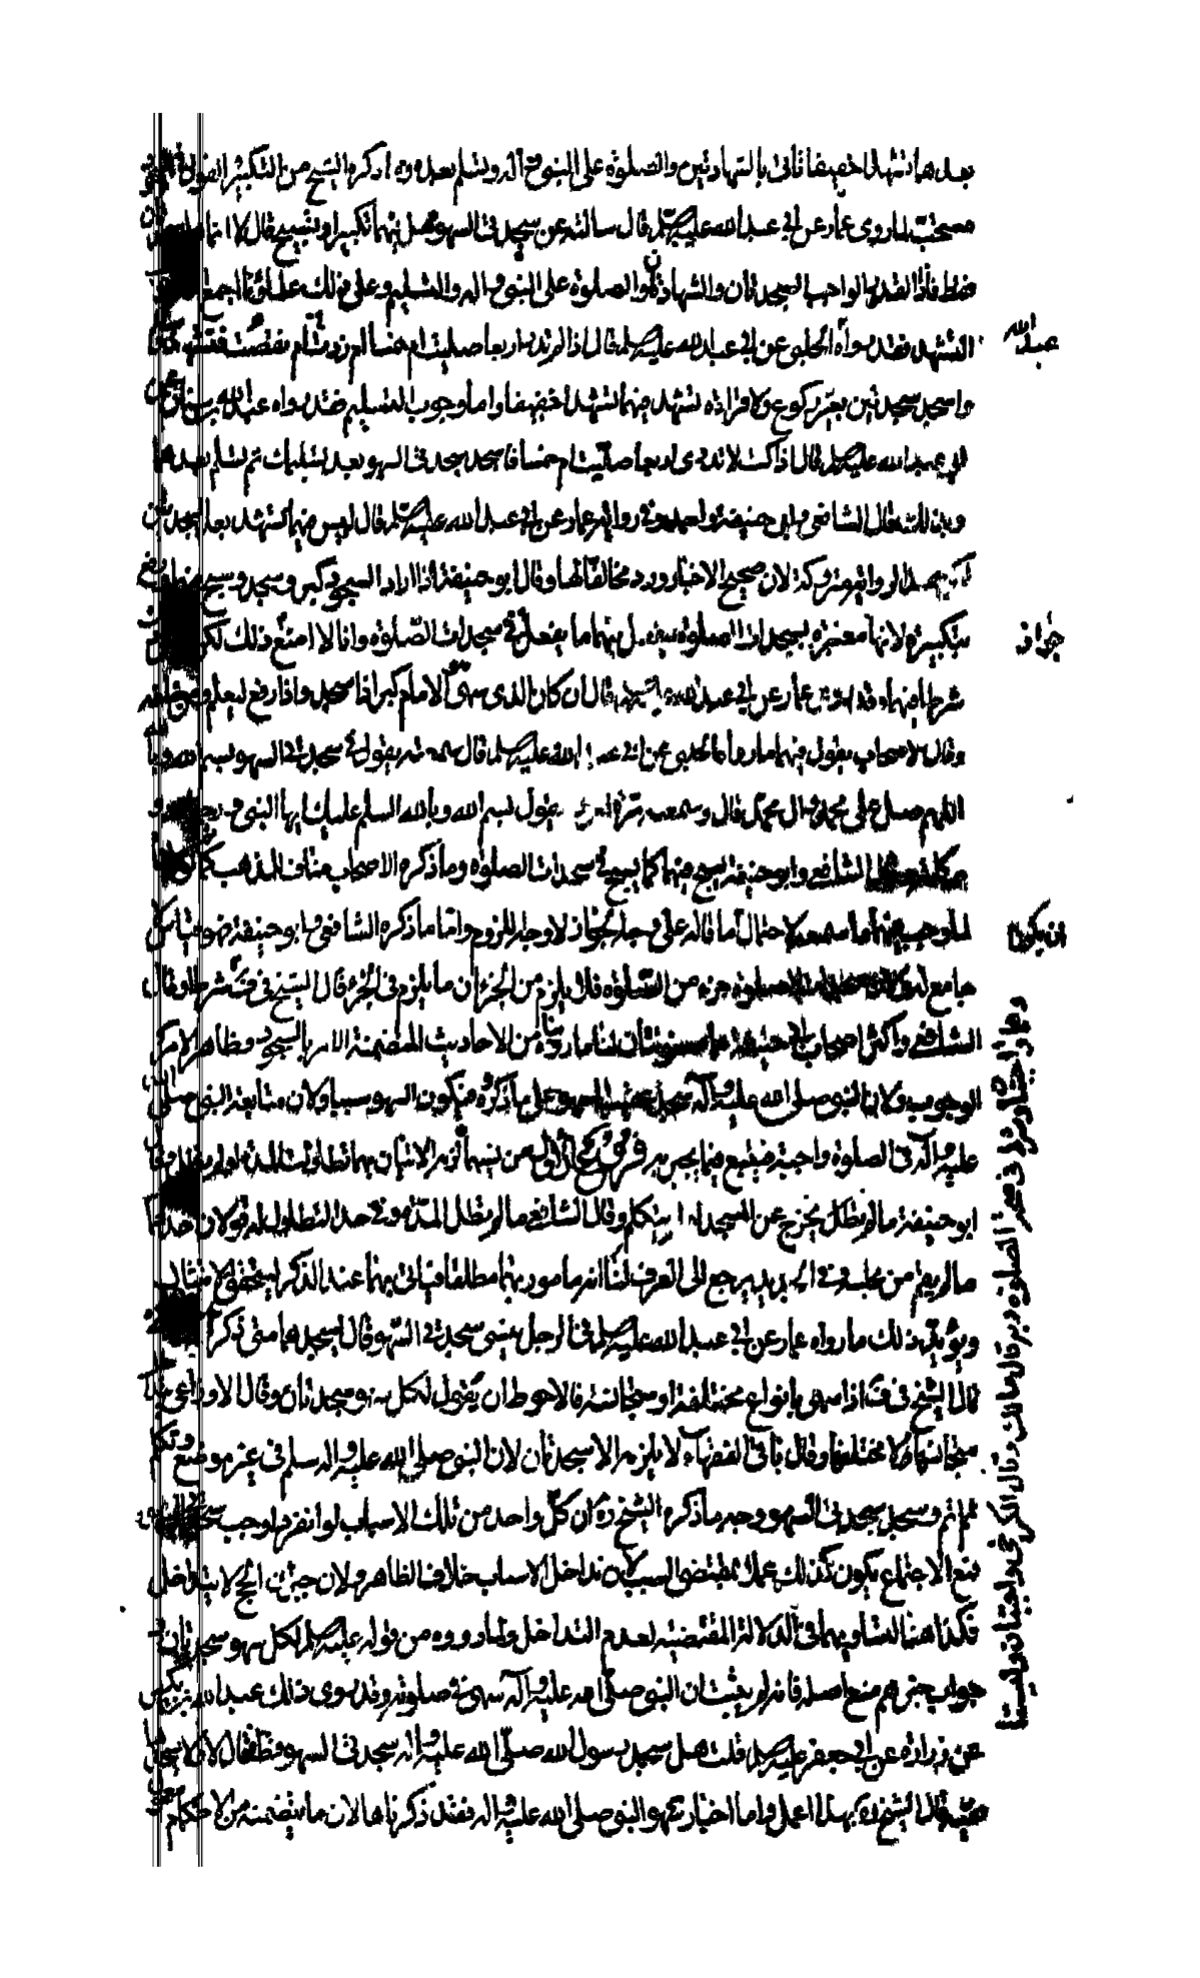 بعدهما تشهدا خفيفا فأتى بالشهادتين والصلوة على النبي وآله ويسلم بعده وما ذكره الشيخ من التكبير
مستحب لما روى عمار عن ابي عبد الله عليه السلم قال سالته عن سجدتى السهو هل فيهما تكبير او تسبيح قال لا انما
فقط فاذا القدر الواجب السجدتان والشهادتان والصلوة على النبي واله والتسليم وعلى ذلك علماؤنا اجمع
التشهد فقد رواه الحلبي عن ابي عبد الله عليه السلم قال اذا لم تدر اربعا صليت ام خمسا ام زدت ام نقصت فتشهد وسلم
واسجد سجدتين بغير ركوع ولا قراءة تشهد فيهما تشهدا خفيفا واما وجوب التسليم فقد رواه عبد الله بن سنان عن
ابي عبد الله عليه السلم قال اذا كنت لا تدرى اربعا صليت ام خمسا فاسجد سجدتى السهو بعد تسليمك ثم تسلم بعدهما
وبذلك قال الشافعي وابو حنيفة واحمد وفي رواية عمار عن ابي عبد الله عليه السلم قال ليس فيهما تشهد بعد السجدتين
لكن هذه الرواية متروكة لان صحيح الاخبار ورد مخالفا لها وقال ابو حنيفة اذا اراد السجود كبر وسجد وسبح
بتكبيرة لانها معتبرة بسجدات الصلوة فيفعل فيهما ما يفعل في سجدات الصلوة وانا لا امنع ذلك لكن
شرطا فيهما وقد روى عمار عن ابي عبد الله عليه السلم قال ان كان الذى سهى الامام كبر اذا سجد واذا رفع ليعلم من خلفه
وقال الاصحاب يقول فيهما ما رواه الحلبي عن ابي عبد الله عليه السلم قال سمعته يقول في سجدتى السهو بسم الله وبالله
اللهم صل على محمد وآل محمد قال وسمعته مرة اخرى يقول بسم الله وبالله السلم عليك ايها النبي ورحمة الله و
بركاته الشافعي وابو حنيفة يسبح فيهما كما يسبح في سجدات الصلوة وما ذكره الاصحاب مناف للمذهب
لاحتمال اما قاله على وجه الجواز لا وجه اللزوم واما ما ذكره الشافعي وابو حنيفة فهو قياس
جامع جزء من الصلوة فلا يلزم من الجزء ان ما يلزم في الجزء قال الشيخ في شرط وقال
الشافعي واكثر اصحاب ابي حنيفة مسنونتان لنا ما رويناه من الاحاديث المتضمنة الامر بالسجود وظاهر الامر
الوجوب ولان النبي صلى الله عليه وآله سجد عقيب السهو على ما ذكروه فيكون السهو سببا ولان متابعة النبي صلى الله
عليه وآله في الصلوة واجبة فيتبع فيما يجبر به فروع الأول من نسيهما لزم الاتيان بهما تطاولت المدة اولم يطل وقال
ابو حنيفة ما لم يطل يخرج عن المسجد او يتكلم وقال الشافعي ما لم يطل المدة وفي حد التطاول له قولان احدهما
ما لم يقم من مجلسه في الجديد يرجع الى العرف لنا انه مامور بهما مطلقا فياتى بهما عند الذكر ليتحقق الامتثال
ويؤيد ذلك ما رواه عمار عن ابي عبد الله عليه السلم في الرجل ينسى سجدتى السهو قال يسجدهما متى ذكر
قال الشيخ في ط اذا سهى بانواع مختلفة او متجانسة فالاحوط ان يقول لكل سهو سجدتان وقال الاوزاعى
متجانسها لا مختلفها وقال باقى الفقهاء لا يلزم الا سجدتان لان النبي صلى الله عليه واله سلم في غير موضع وتكلم
ثم اتم وسجد سجدتى السهو ووجه ما ذكره الشيخ ره ان كل واحد من تلك الاسباب لو انفرد اوجب
فمع الاجتماع يكون كذلك عملا بمقتضى السبب لان تداخل الاسباب خلاف الظاهر ولان جبران الحج لا يتداخل
فكذا هنا لتساويهما في الدلالة المقتضية لعدم التداخل ولما رووه من قوله عليه السلم لكل سهو سجدتان
جواب خبرهم منع اصله فانه لم يثبت ان النبي صلى الله عليه وآله سهى في صلوته وقد روى ذلك عبد الله بن بكير
عن زرارة عن ابي جعفر عليه السلم قلت هل سجد رسول الله صلى الله عليه واله سجدتى السهو قط فقال لا ولا يسجدهما
فقيه قال الشيخ ره بهذا اعمل واما اخبار سهو النبي صلى الله عليه واله فقد ذكرناها لان ما يتضمنه من الاحكام
عبد الله
جواز
ان يكون
وهما واجبتان وشرط في صحة الصلوة وبه قال مالك وقال الكرخى واجبتان وليستا